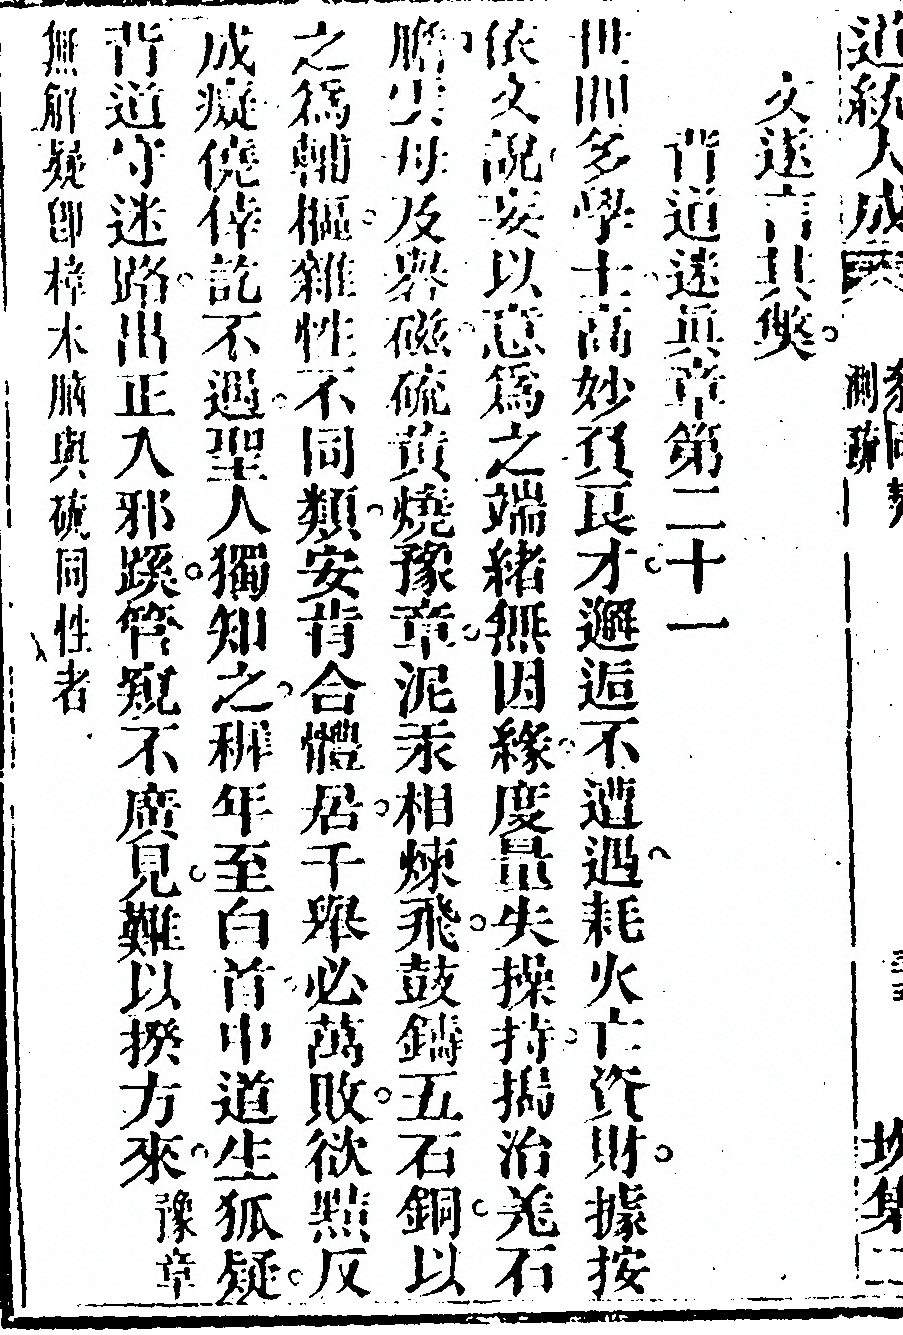 道統大成 參同契
測疏 坎集二
文遂言其弊
背道迷眞章第二十一
世間多學士高妙負良才邂逅不遭遇耗火亡資財據按
依文說妄以意爲之端緒無因緣度量失操持搗治羌石
膽母及礬磁硫黄燒豫章泥汞相煉飛鼓鑄五石銅以
之爲輔樞雜性不同類安肯合體居千舉必萬敗欲黠反
成癡僥倖訖不遇聖人獨知之稚年至白首中道生狐疑
背道守迷路出正入邪蹊管窺不廣見難以揆方來豫章
無解疑卽樟木腦與硫同性者